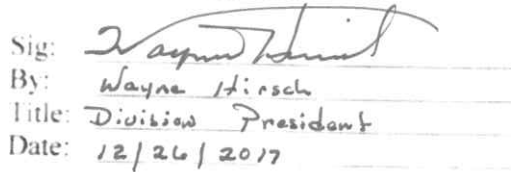 Sig: Wayne Hirsch
By: Wayne Hirsch
Title: Division President
Date: 12/26/2017